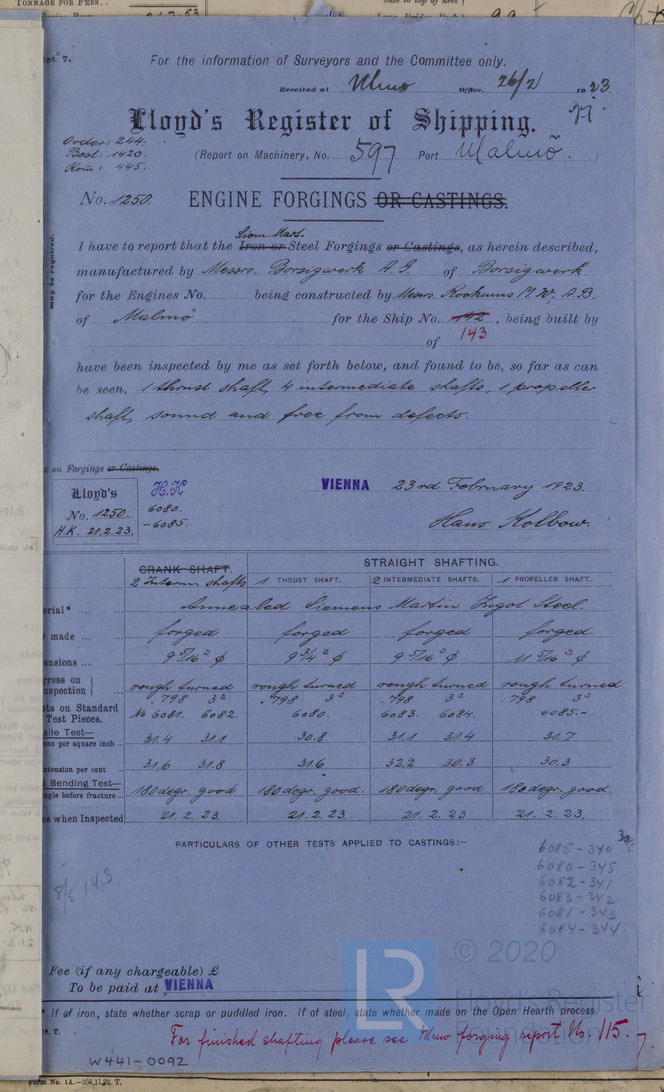 TONNAGE FOR FEES..
pt. 7.
For the information of Surveyors and the Committee only.
Received at Office, 26/2 1923.
Lloyd's Register of Shipping.
Order: 244.
Best: 1420.
Kom: 445.
(Report on Machinery, No. 597 Port Malmö.)
No. 1250. ENGINE FORGINGS OR CASTINGS.
Siem. Mart.
I have to report that the Iron or Steel Forgings or Castings, as herein described,
manufactured by Messrs. Borsigwerk A.G. of Borsigwerk
for the Engines No. being constructed by Messrs. Kockums M.W. A.B.
of Malmö for the Ship No. 142, being built by
143
of
may be required.
have been inspected by me as set forth below, and found to be, so far as can
be seen, 1 thrust shaft, 4 intermediate shafts, 1 propeller
shaft, sound and free from defects.
on Forgings or Castings.
Lloyd's
No. 1250.
H.K. 21.2.23.
H.K
6080.
-6085.
VIENNA 23rd February 1923.
Hans Kolbow.
CRANK SHAFT. STRAIGHT SHAFTING.
2 Interm shafts 1 THRUST SHAFT. 2 INTERMEDIATE SHAFTS. 1 PROPELLER SHAFT.
erial* ... Annealed Siemens Martin Ingot Steel.
made ... forged forged forged forged
ensions ... 9 5/16" φ 9 3/4" φ 9 5/16" φ 11 5/16" φ
gress on
nspection rough turned rough turned rough turned rough turned
.798 3" .798 3" .798 3" .798 3"
ts on Standard
Test Pieces. No 6081. 6082. 6080. 6083. 6084. 6085.-
sile Test—
ons per square inch ... 31.4 31.1 30.8 31.1 31.4 31.7
xtension per cent 31.6 31.8 31.6 32.2 30.3 30.3
Bending Test—
ngle before fracture ... 180degr. good 180degr. good. 180degr. good 180degr. good.
es when Inspected 21. 2. 23. 21. 2. 23. 21. 2. 23 21. 2. 23.
PARTICULARS OF OTHER TESTS APPLIED TO CASTINGS:—
6085-340
6080-345
6082-341
6083-342
6081-343
6084-344
143
© 2020
Lloyd's Register
Foundation
Fee (if any chargeable) £
To be paid at VIENNA
* If of iron, state whether scrap or puddled iron. If of steel, state whether made on the Open Hearth process.
For finished shafting please see forging report No. 115.
W441-0092
Form No. 1A.